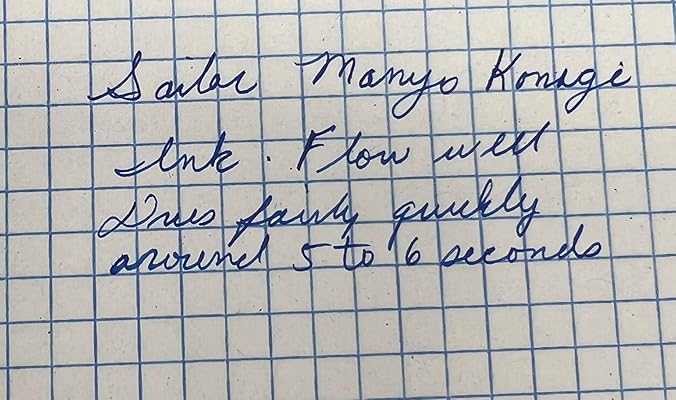 Sailor Manyo Konagi
Ink. Flow well
Dries fairly quickly
around 5 to 6 seconds